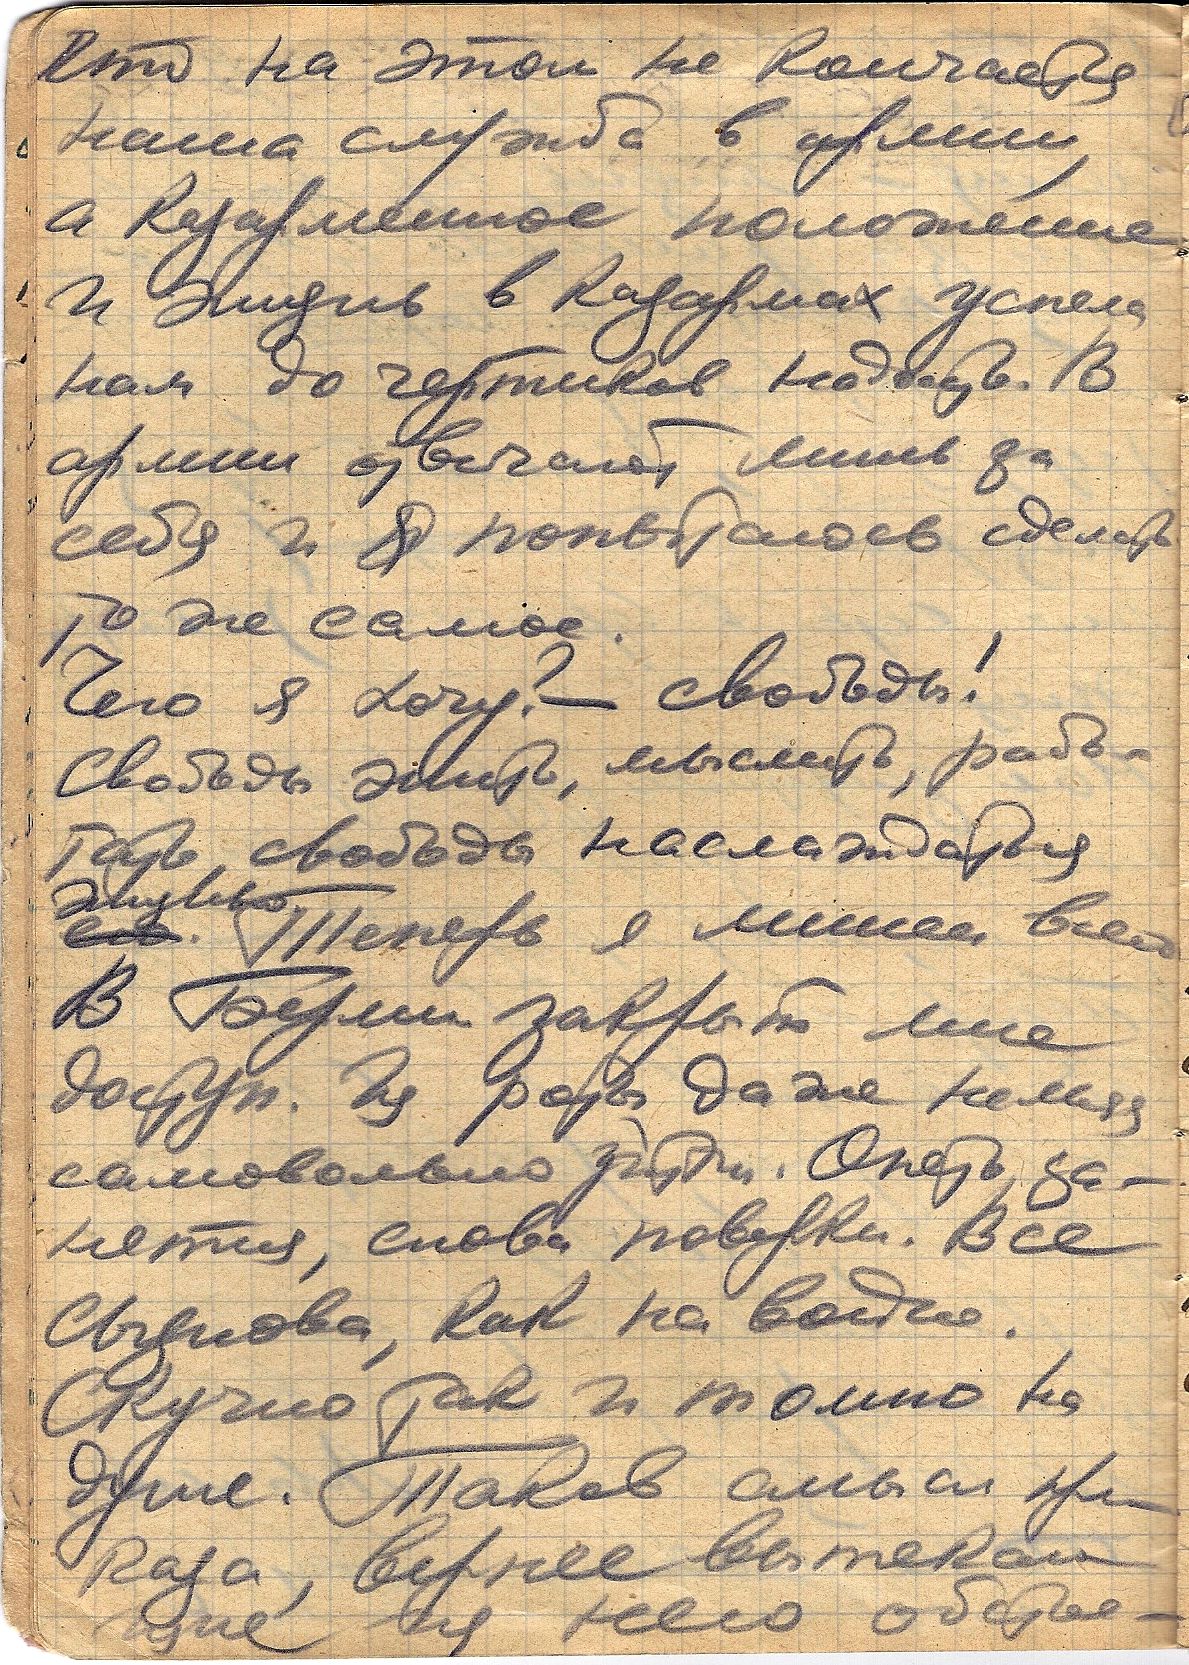 что на этом не кончается
наша служба в армии,
а казарменное положение
и жизнь в казармах успела
нам до чертиков надоесть. В
армии отвечают лишь за
себя и я попытаюсь сделать
то же самое.
Чего я хочу? – свободы!
Свободы жить, мыслить, рабо-
тать, свободы наслаждаться
жизнью. Теперь я лишен всего
В Берлин закрыт мне
доступ. Из роты даже нельзя
самовольно уйти. Опять за-
нятия, снова поверки. Все
сызнова, как на войне.
Скучно так и томно на
душе. Таков смысл при-
каза, вернее вытекаю-
щие из него обстоя-